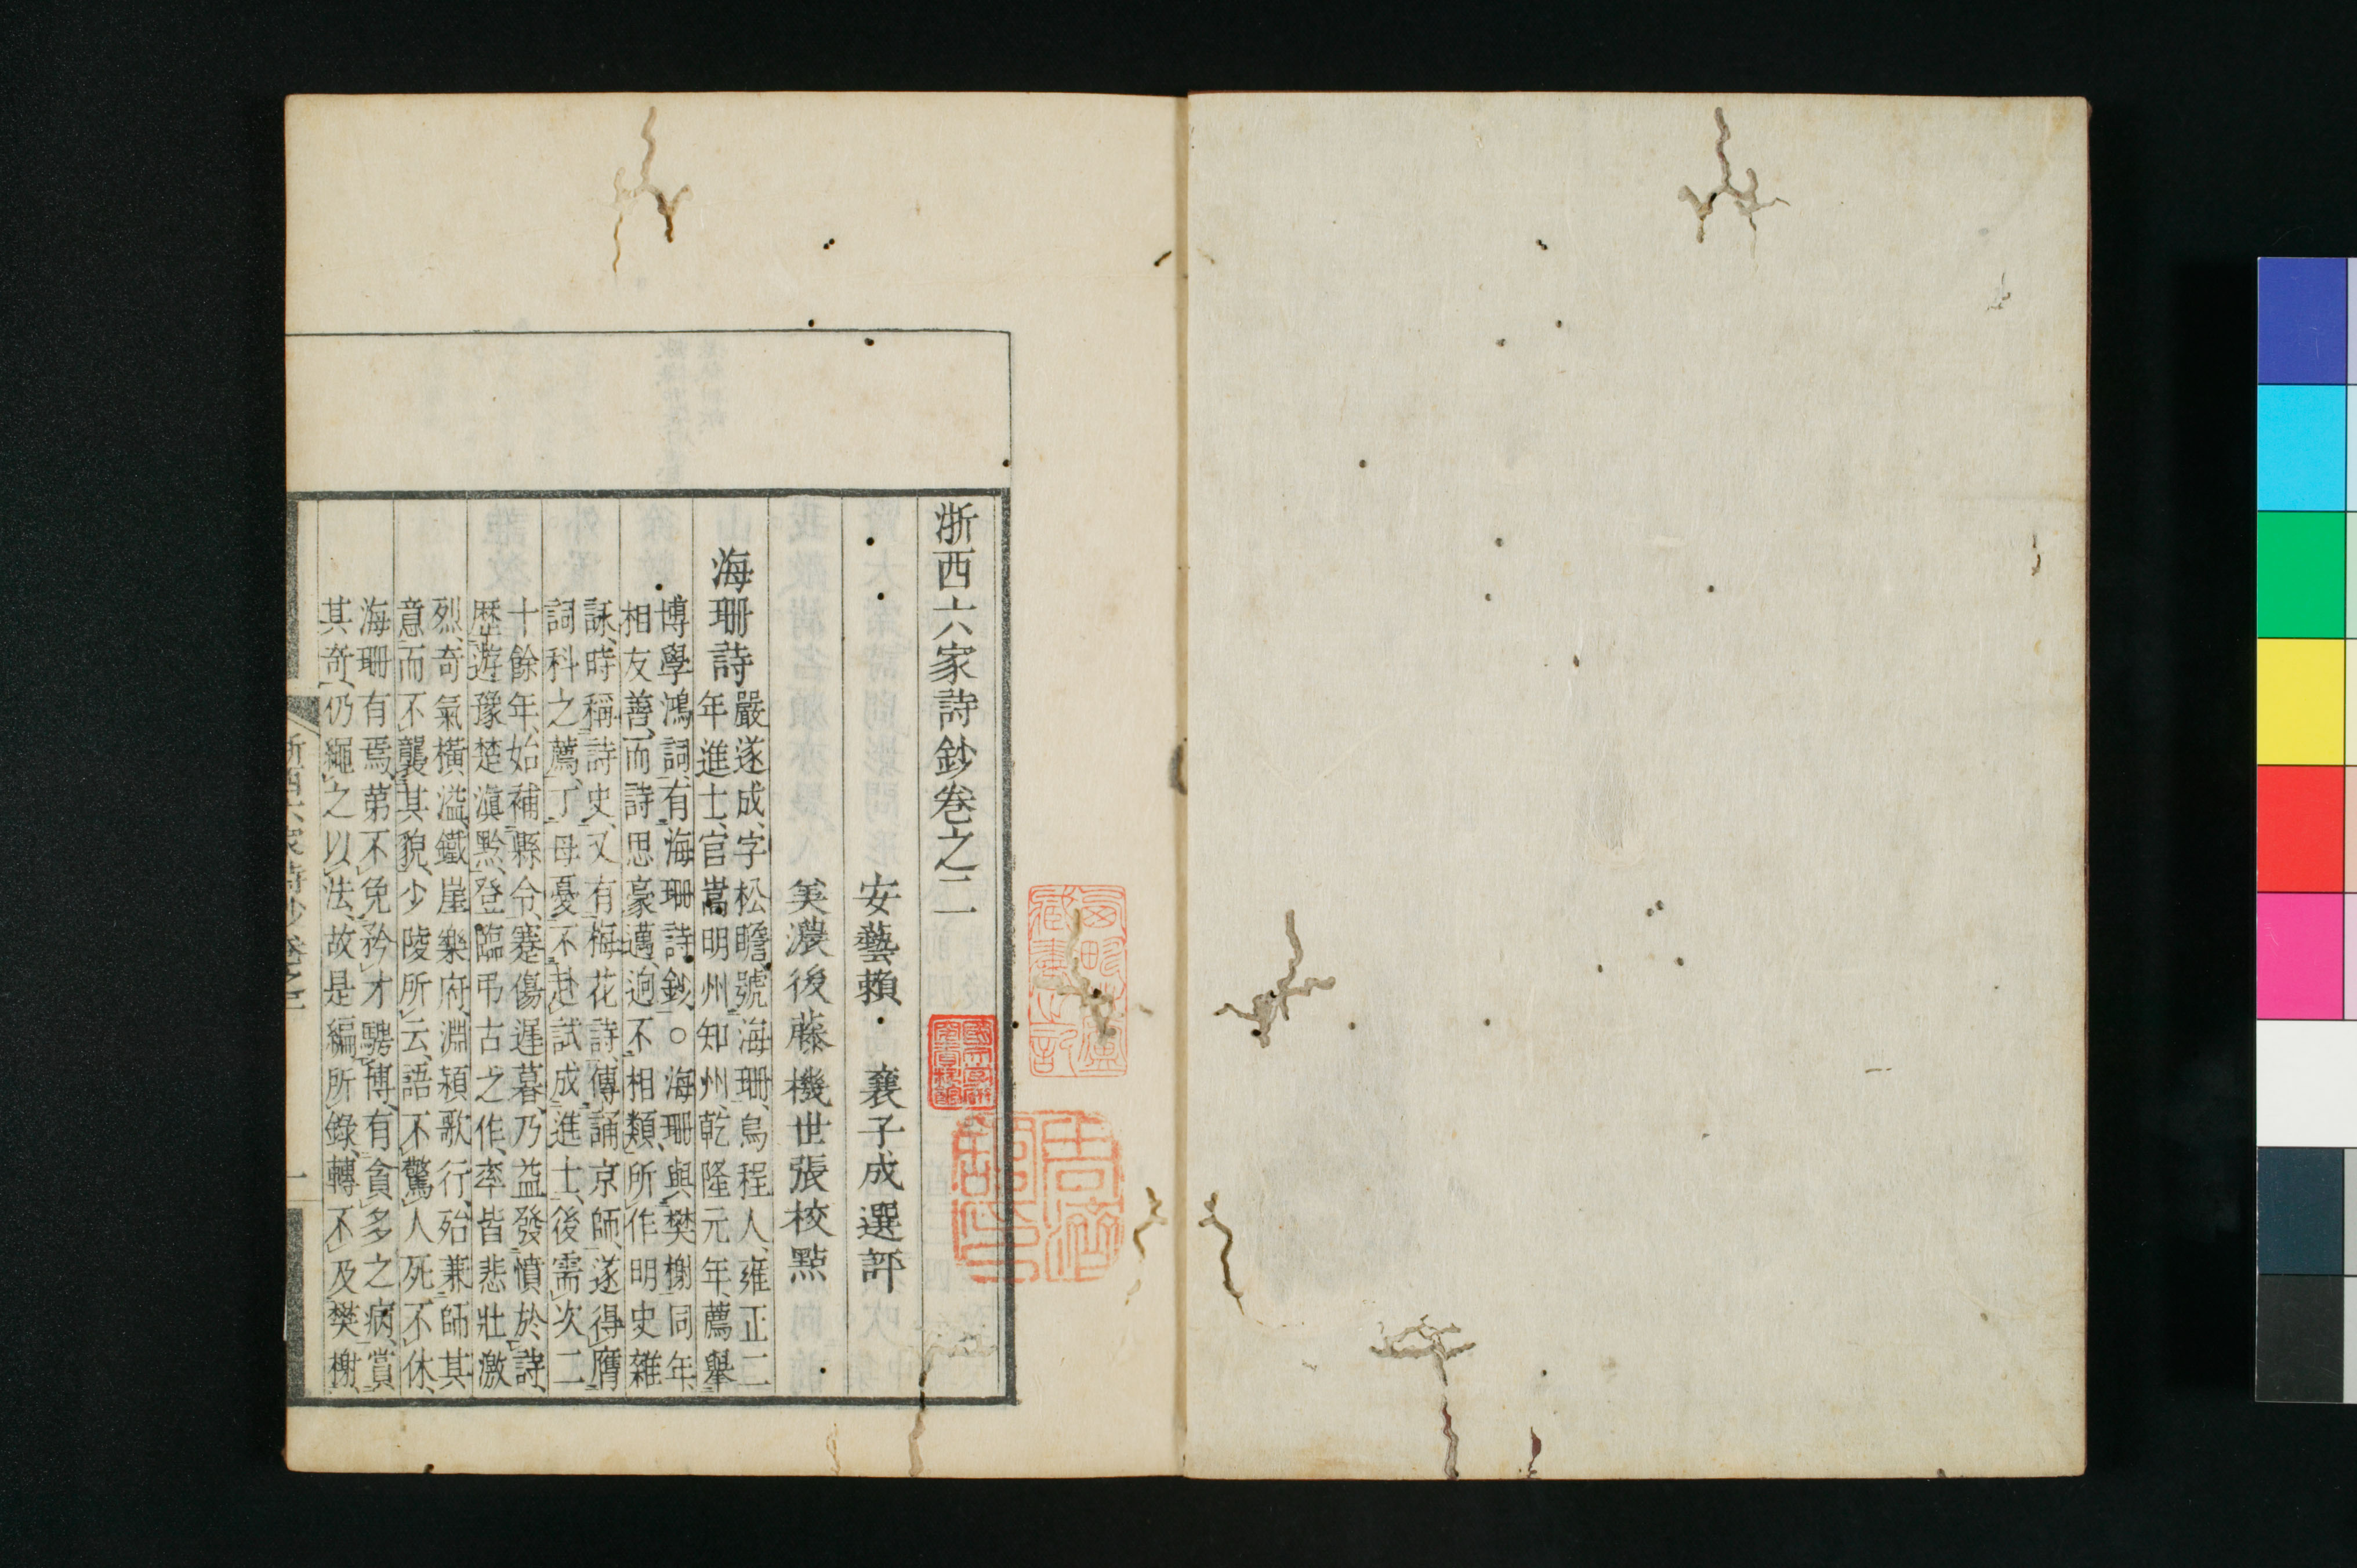 浙西六家詩鈔卷之二
安藝賴 襄子成選評
美濃後藤機世張校點
海珊詩
嚴遂成、字松瞻、號海珊、烏程人、雍正二
年進士、官嵩明州知州、乾隆元年、薦舉
博學鴻詞、有海珊詩鈔。○海珊與樊榭同年、
相友善、而詩思豪邁、逈不相類、所作明史雜
詠、時稱詩史、又有梅花詩、傳誦京師、遂得膺
詞科之薦、丁母憂、不赴試、成進士、後需次二
十餘年、始補縣令、蹇傷遲暮、乃益發憤於詩、
歷遊豫楚滇黔、登臨弔古之作、率皆悲壯激
烈、奇氣橫溢、鐵崖樂府、淵穎歌行、殆兼師其
意、而不襲其貌、少陵所云、語不驚人死不休、
海珊有焉、第不免矜才騁博、有貪多之病、賞
其奇、仍繩之以法、故是編所錄、轉不及樊榭、
浙西六家詩鈔卷之二
一